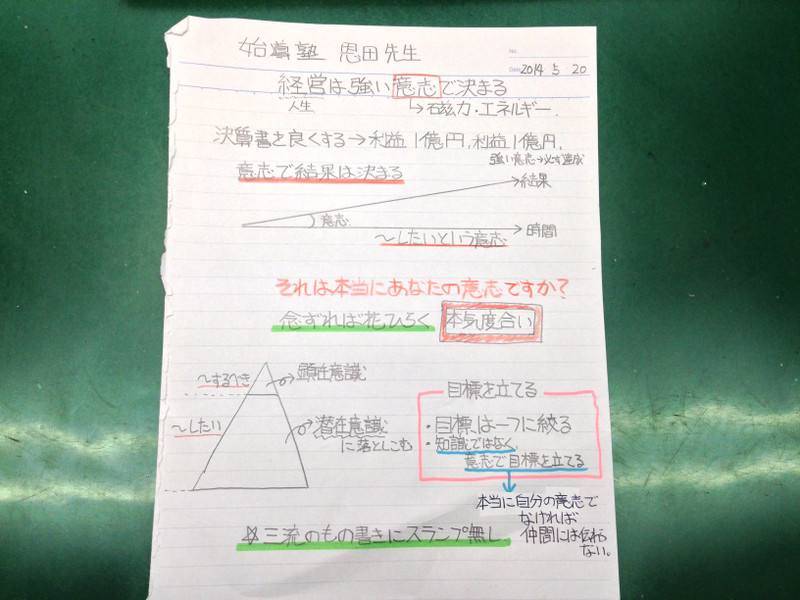 始導塾 恩田先生
No.
Date 2014 5 20
経営は強い意志で決まる
人生 →磁力・エネルギー.
決算書を良くする→利益1億円,利益1億円,
強い意志→必ず達成
意志で結果は決まる
結果
意志
時間
〜したいという意志
それは本当にあなたの意志ですか?
念ずれば花ひらく 本気度合い
〜するべき 顕在意識
〜したい 潜在意識
に落としこむ
目標を立てる
・目標は一つに絞る
・知識ではなく、
意志で目標を立てる
本当に自分の意志で
なければ
仲間には伝わら
ない。
☆三流のもの書きにスランプ無し